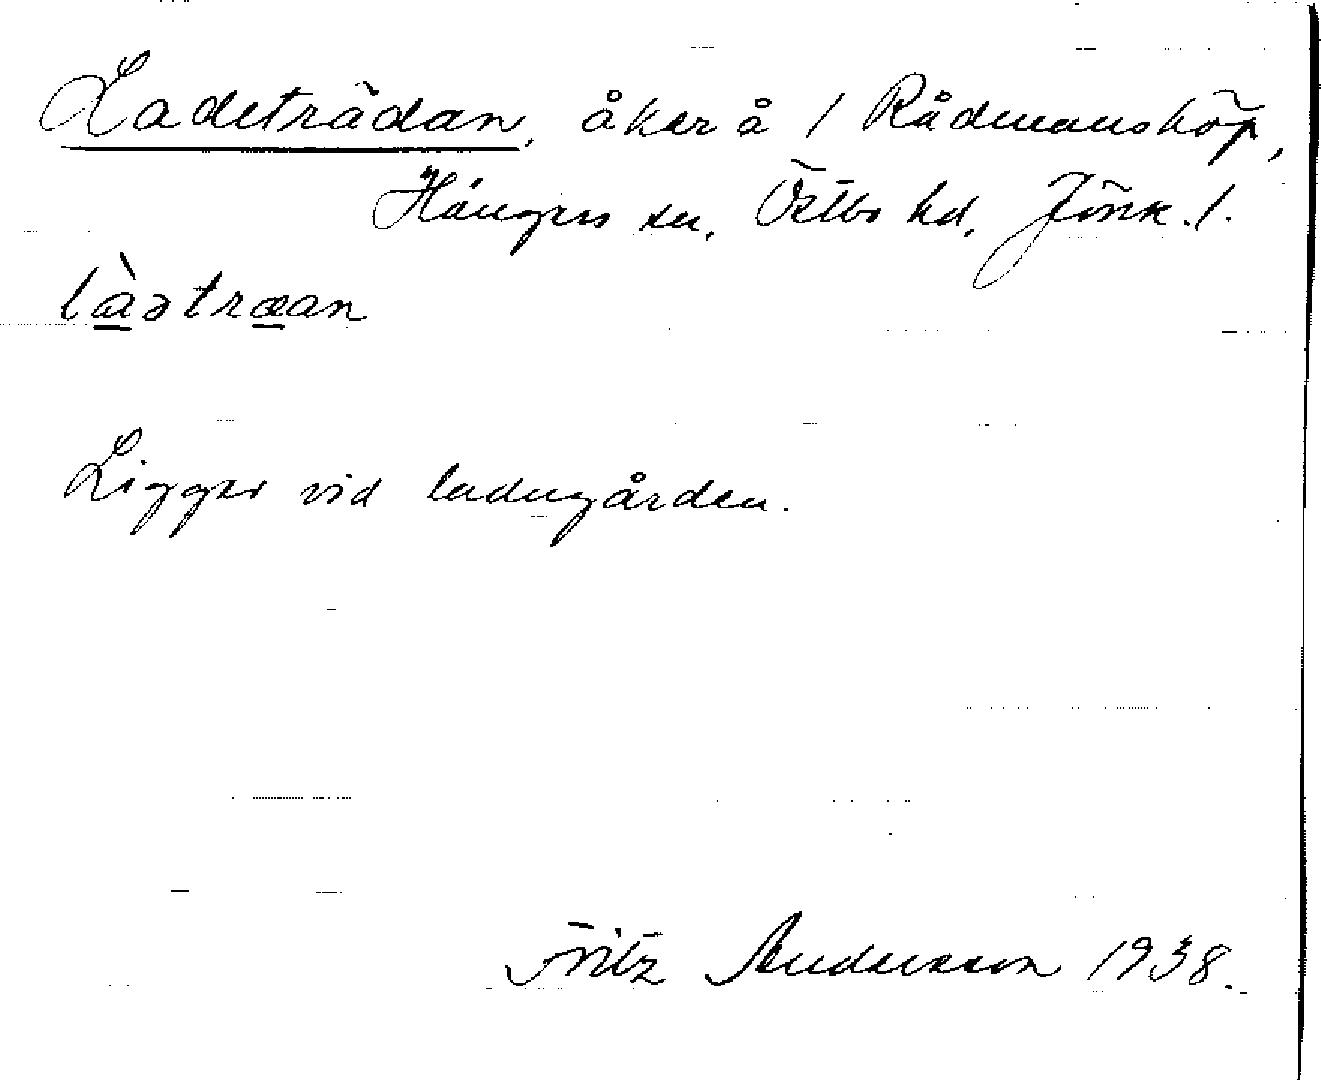 Ladeträdan, åker å 1 Rådmanshöp,
Hångers sn, Östbo hd, Jönk. l.
là̱ətræ̱an
Ligger vid ladugården.
Fritz Andersson 1938.